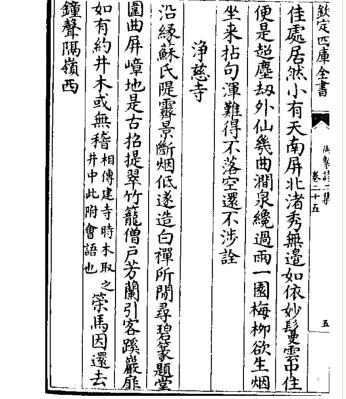 欽定四庫全書
御製詩二集
卷二十五
五
佳處居然小有天南屏北渚秀無邊如依妙鬘雲中住
便是超塵劫外仙幾曲澗泉纔過雨一園梅柳欲生烟
坐来拈句渾難得不落空還不涉詮
淨慈寺
沿緣蘇氏隄霽景斷烟低遂造白禪所閒尋碧篆題堂
圍曲屏嶂地是古招提翠竹籠僧戶芳蘭引客蹊巖扉
如有約井木或無稽相傳建寺時木取之井中此附會語也䇿馬因還去
鐘聲隔嶺西